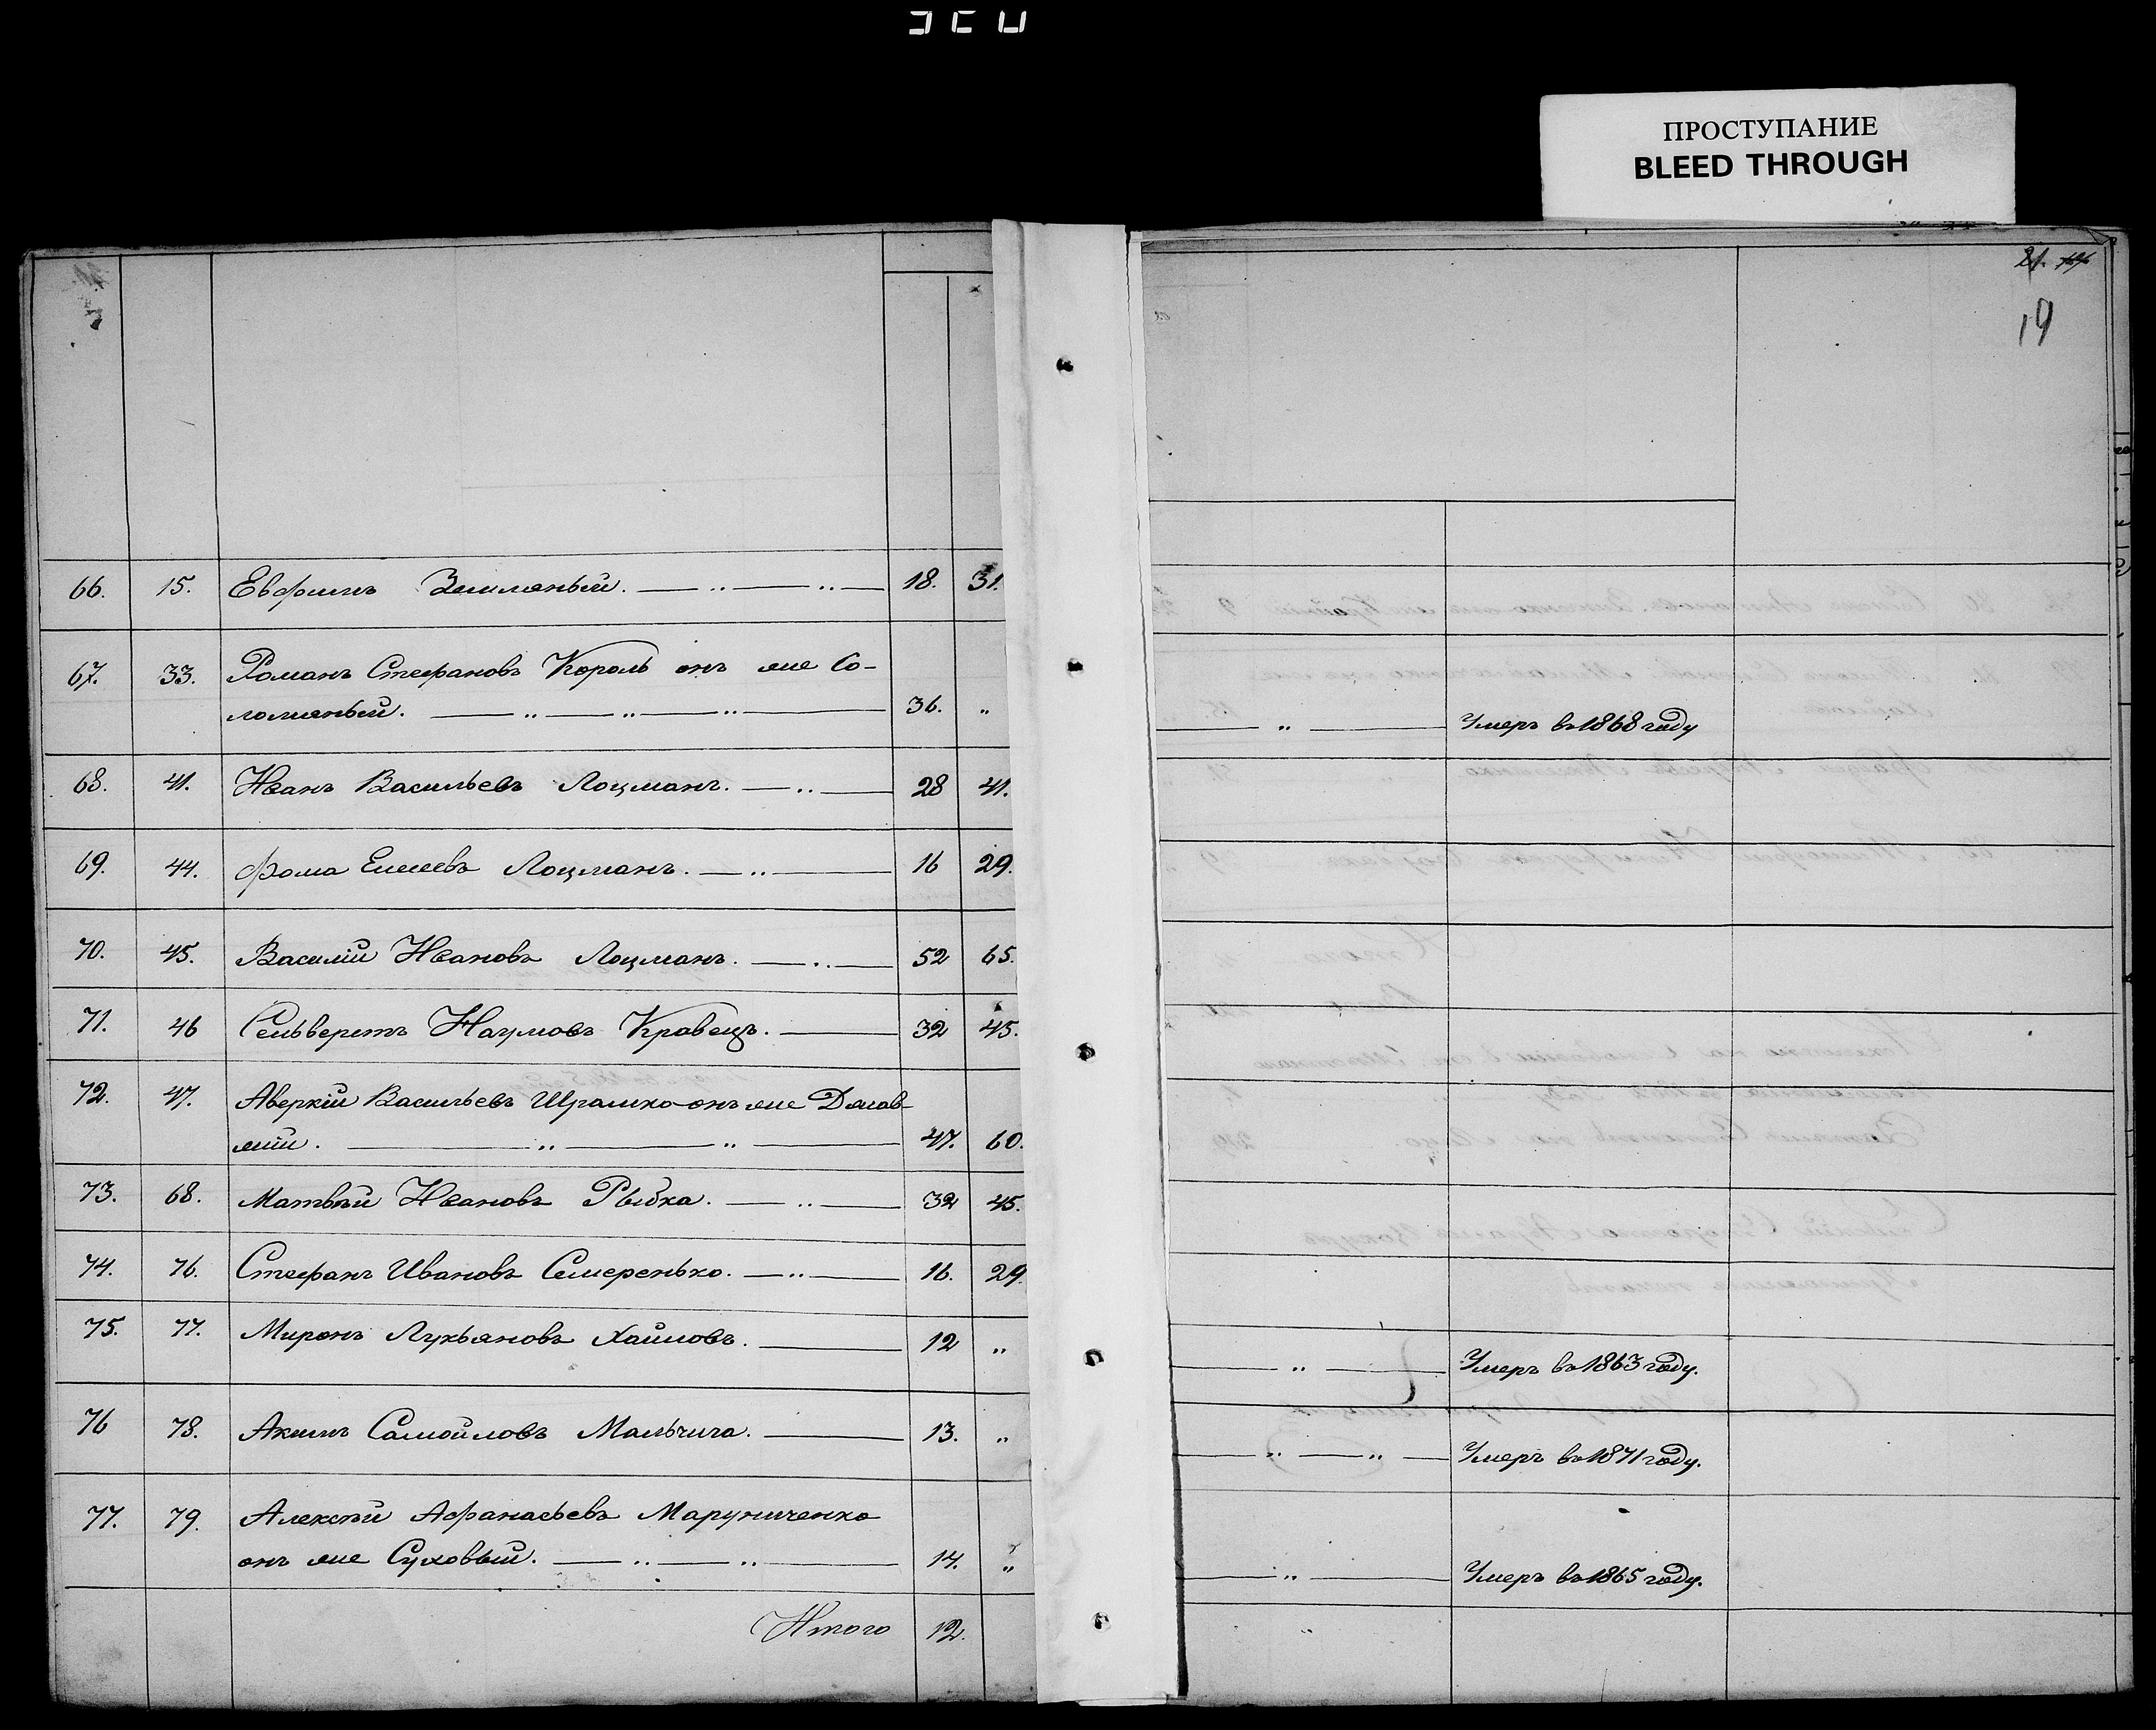 ПРОСТУПАНИЕ
BLEED THROUGH
21.
19
66. 15. Ефимъ Земляный. 18. 31.
67. 33. Романъ Стефановъ Король онъ же Со-
ломяный. 36. „ „ Умеръ въ 1868 году
68. 41. Иванъ Васильевъ Лоцманъ. 28 41.
69. 44. Фома Елисеевъ Лоцманъ. 16 29.
70. 45. Василій Ивановъ Лоцманъ. 52 65.
71. 46 Сельверстъ Наумовъ Кравецъ. 32 45.
72. 47. Аверкій Васильевъ Шрамко онъ же
47. 60.
73. 68. Матвѣй Ивановъ Рыбка. 32 45.
74. 76. Стефанъ Ивановъ Семеренько. 16. 29.
75. 77. Миронъ Лукьяновъ Хаиловъ. 12 „ „ Умеръ въ 1863 году.
76 78. Акимъ Самойловъ 13. „ „ „ Умеръ въ 1871 году.
77. 79. Алексѣй Афанасьевъ Маруниченко
онъ же Суховый. 14. „ „ Умеръ въ 1865 году.
Итого 12.